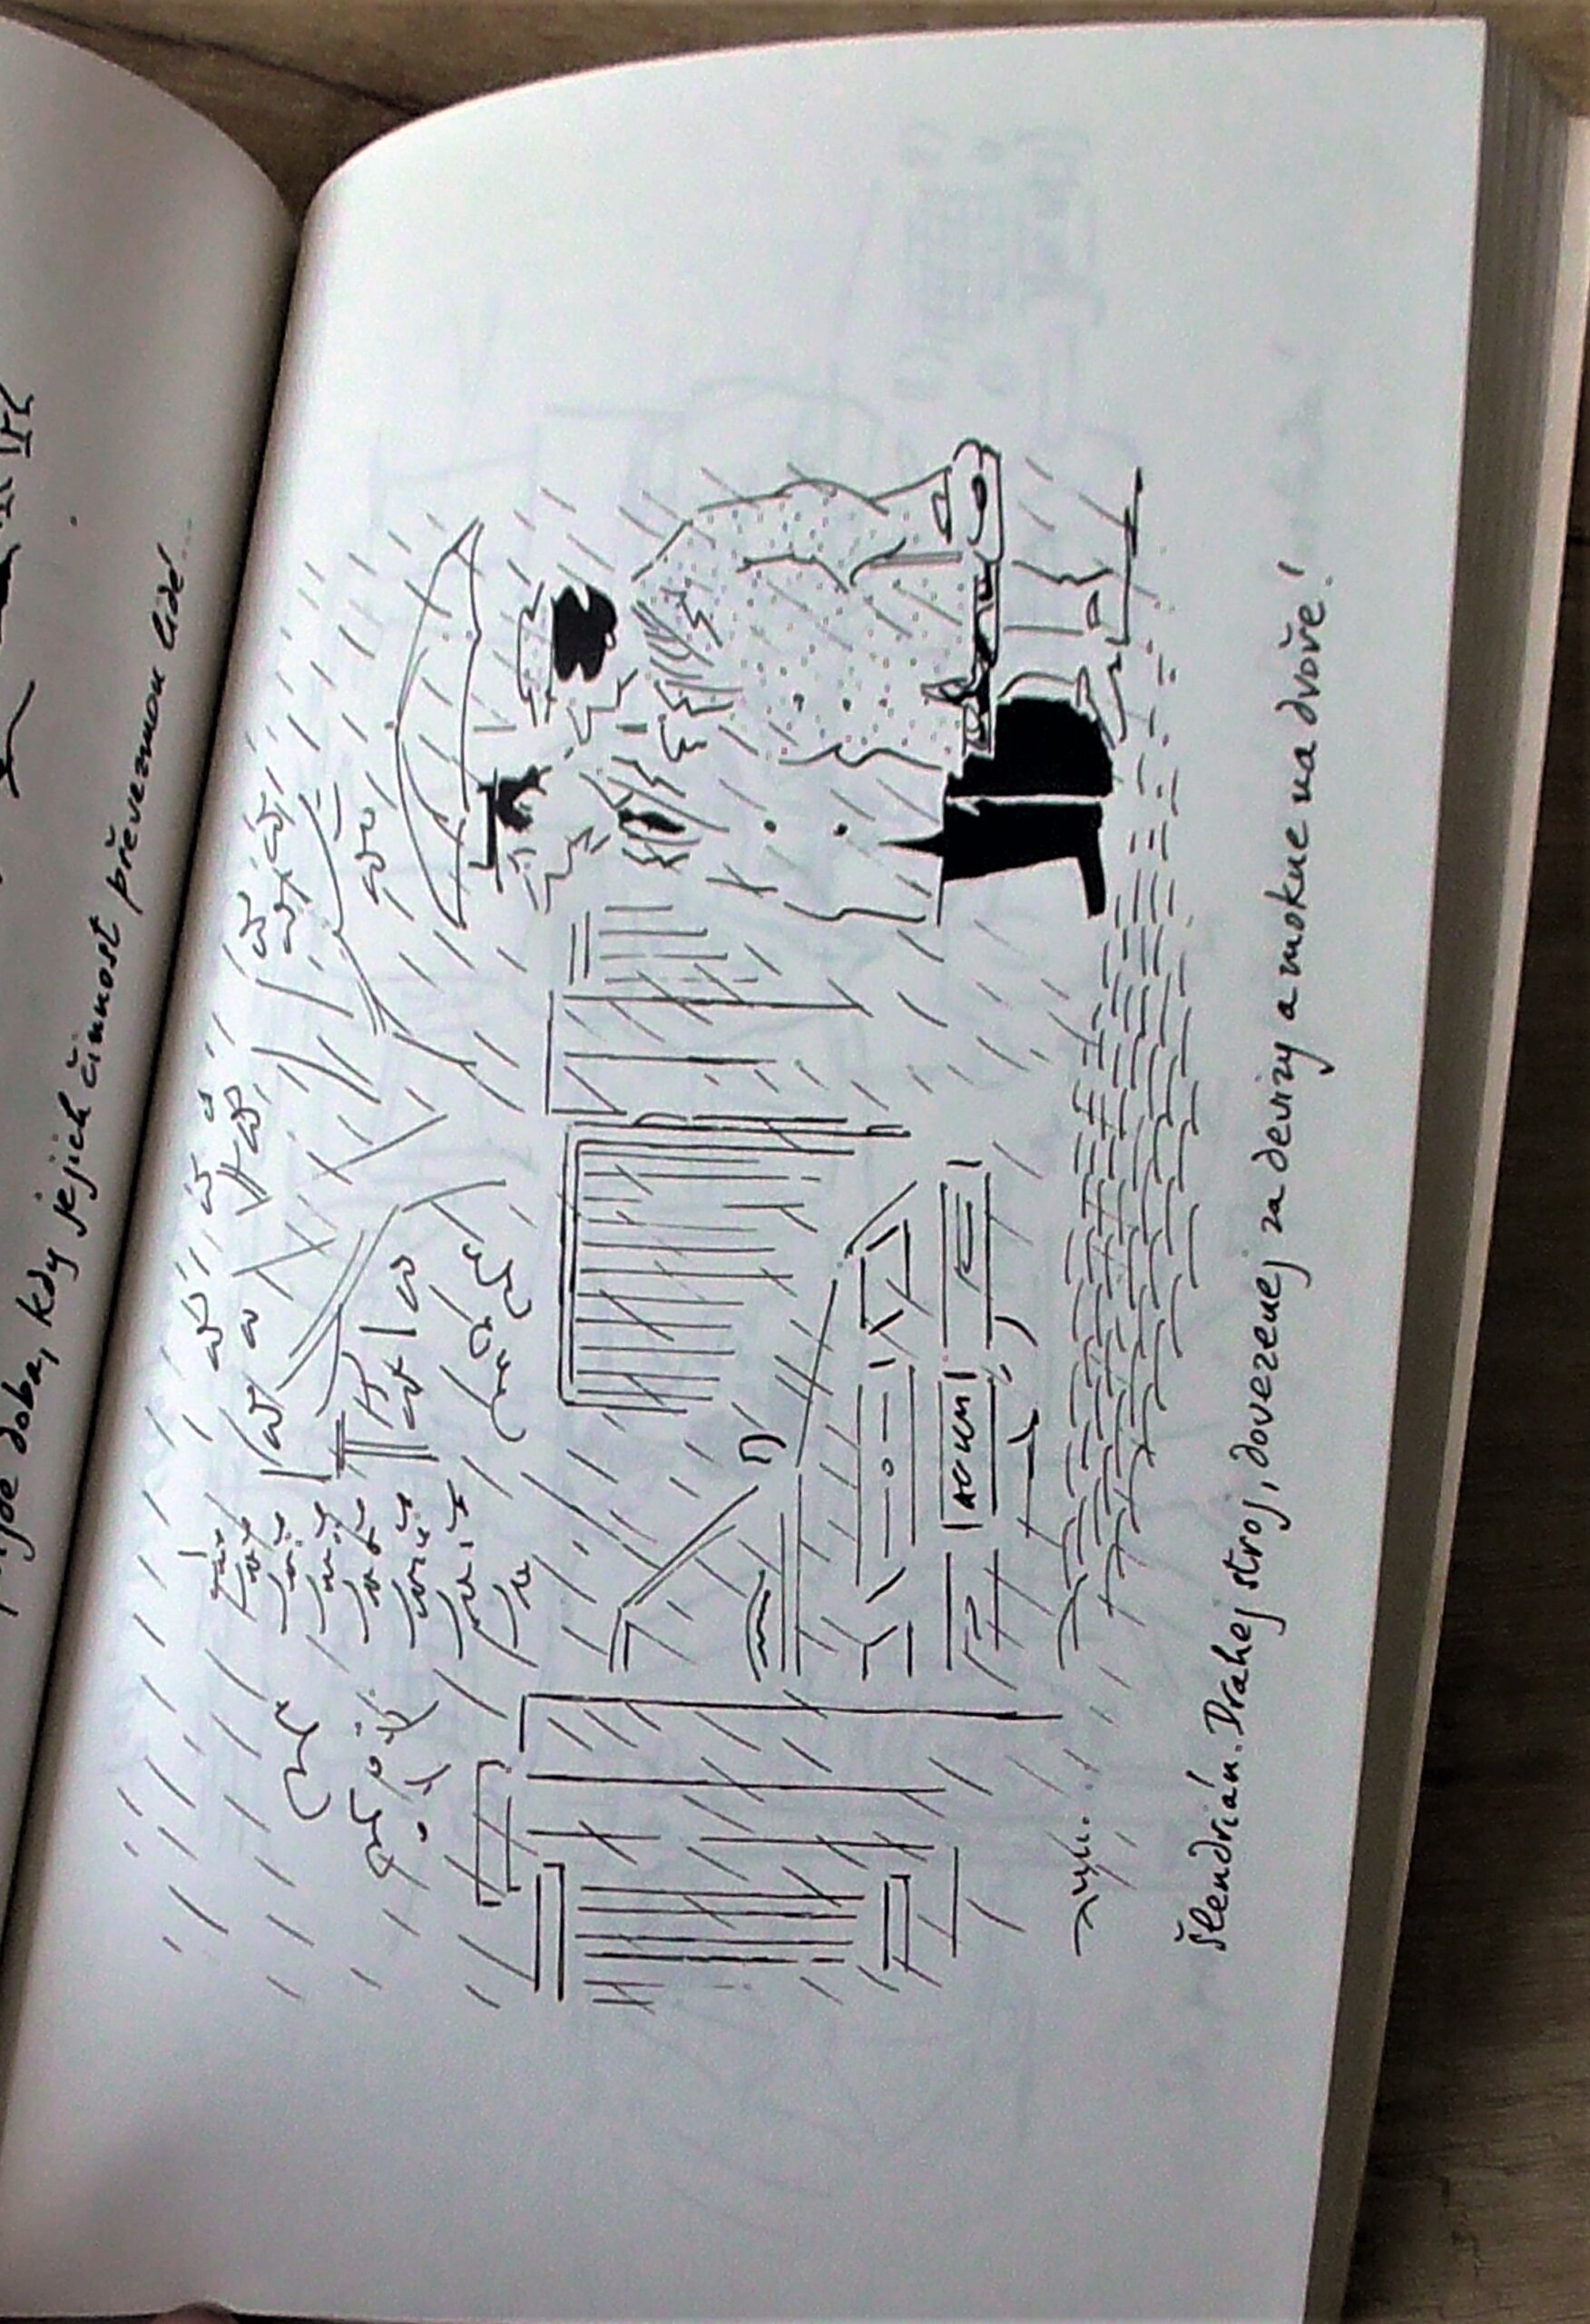 doba, kdy jejich činnost převezmou lidé...
ACHEMA
Šlendrián. Drahej stroj, dovezenej za devizy a mokne na dvoře!